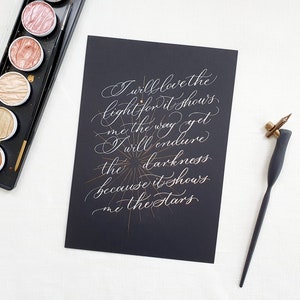 I will love the
light for it shows
me the way yet
I will endure
the darkness
because it shows
me the stars